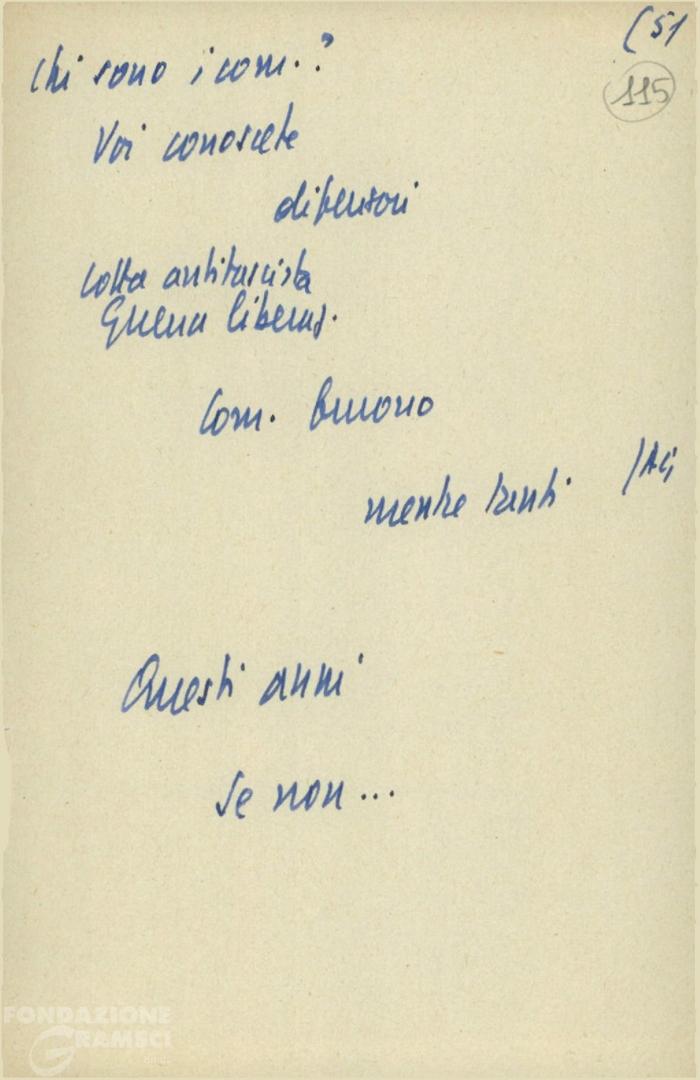 (51
115
Chi sono i com.?
Voi conoscete
difensori
Lotta antifascista
Guerra liberaz.
Com. buono
mentre tanti
Questi anni
Se non...
FONDAZIONE
GRAMSCI